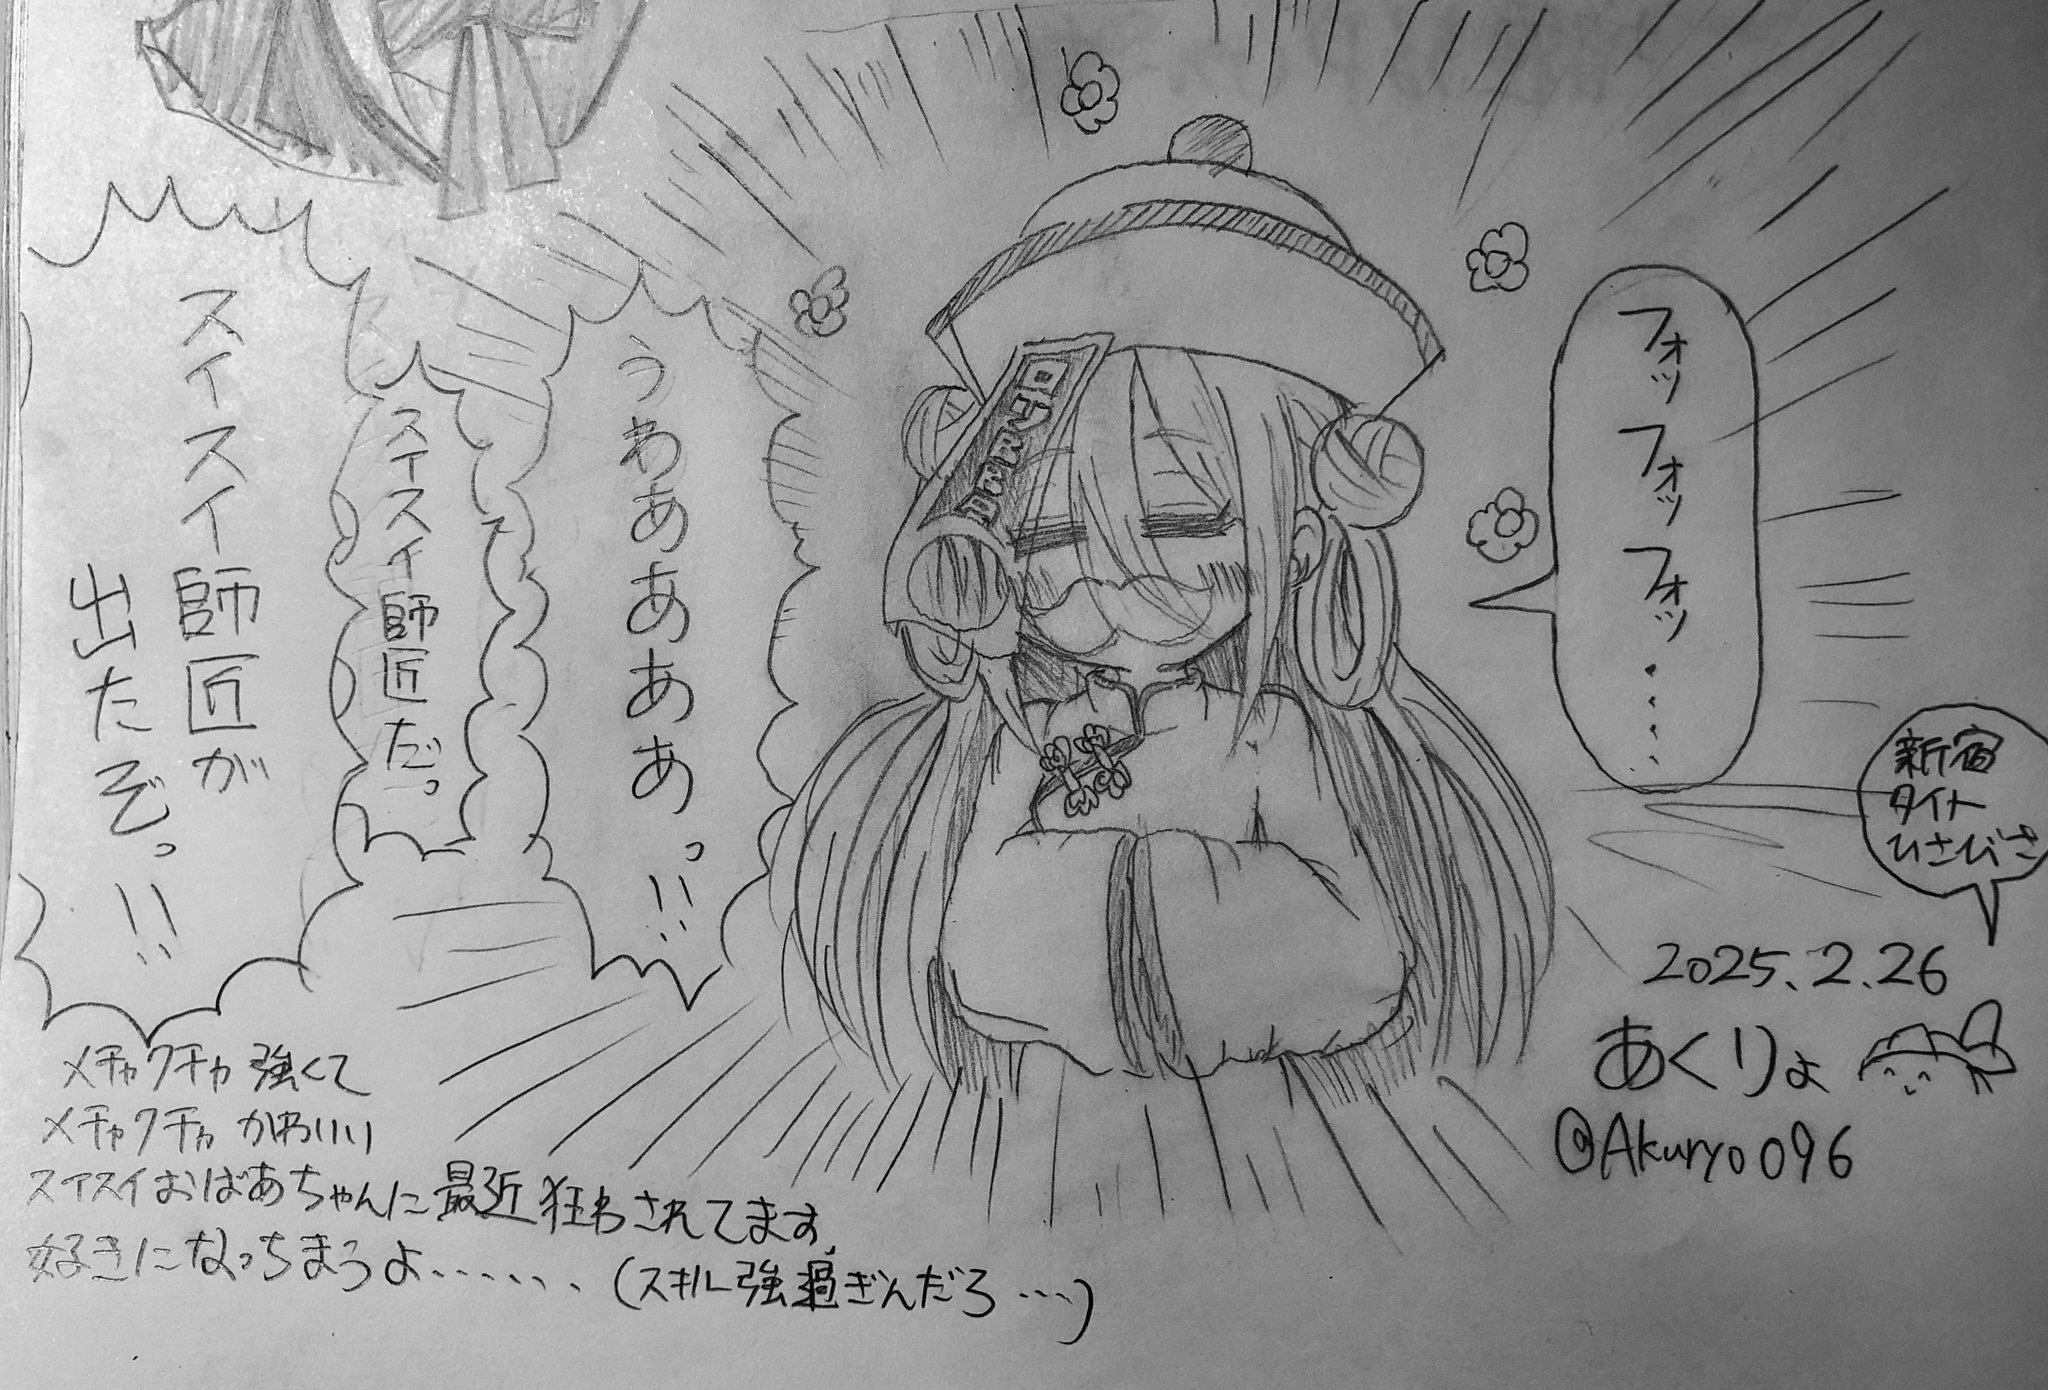 フォッフォッフォッ・・・・・・
うわあああああっ!!
スイスイ師匠だっ
スイスイ師匠が
出たぞっ!!
新宿
タイト
ひさびさ
2025.2.26
あくりょ
@Akuryo096
メチャクチャ強くて
メチャクチャかわいい
スイスイおばあちゃんに最近狂わされてます。
好きになっちまうよ・・・・・・(スキル強過ぎんだろ・・・)